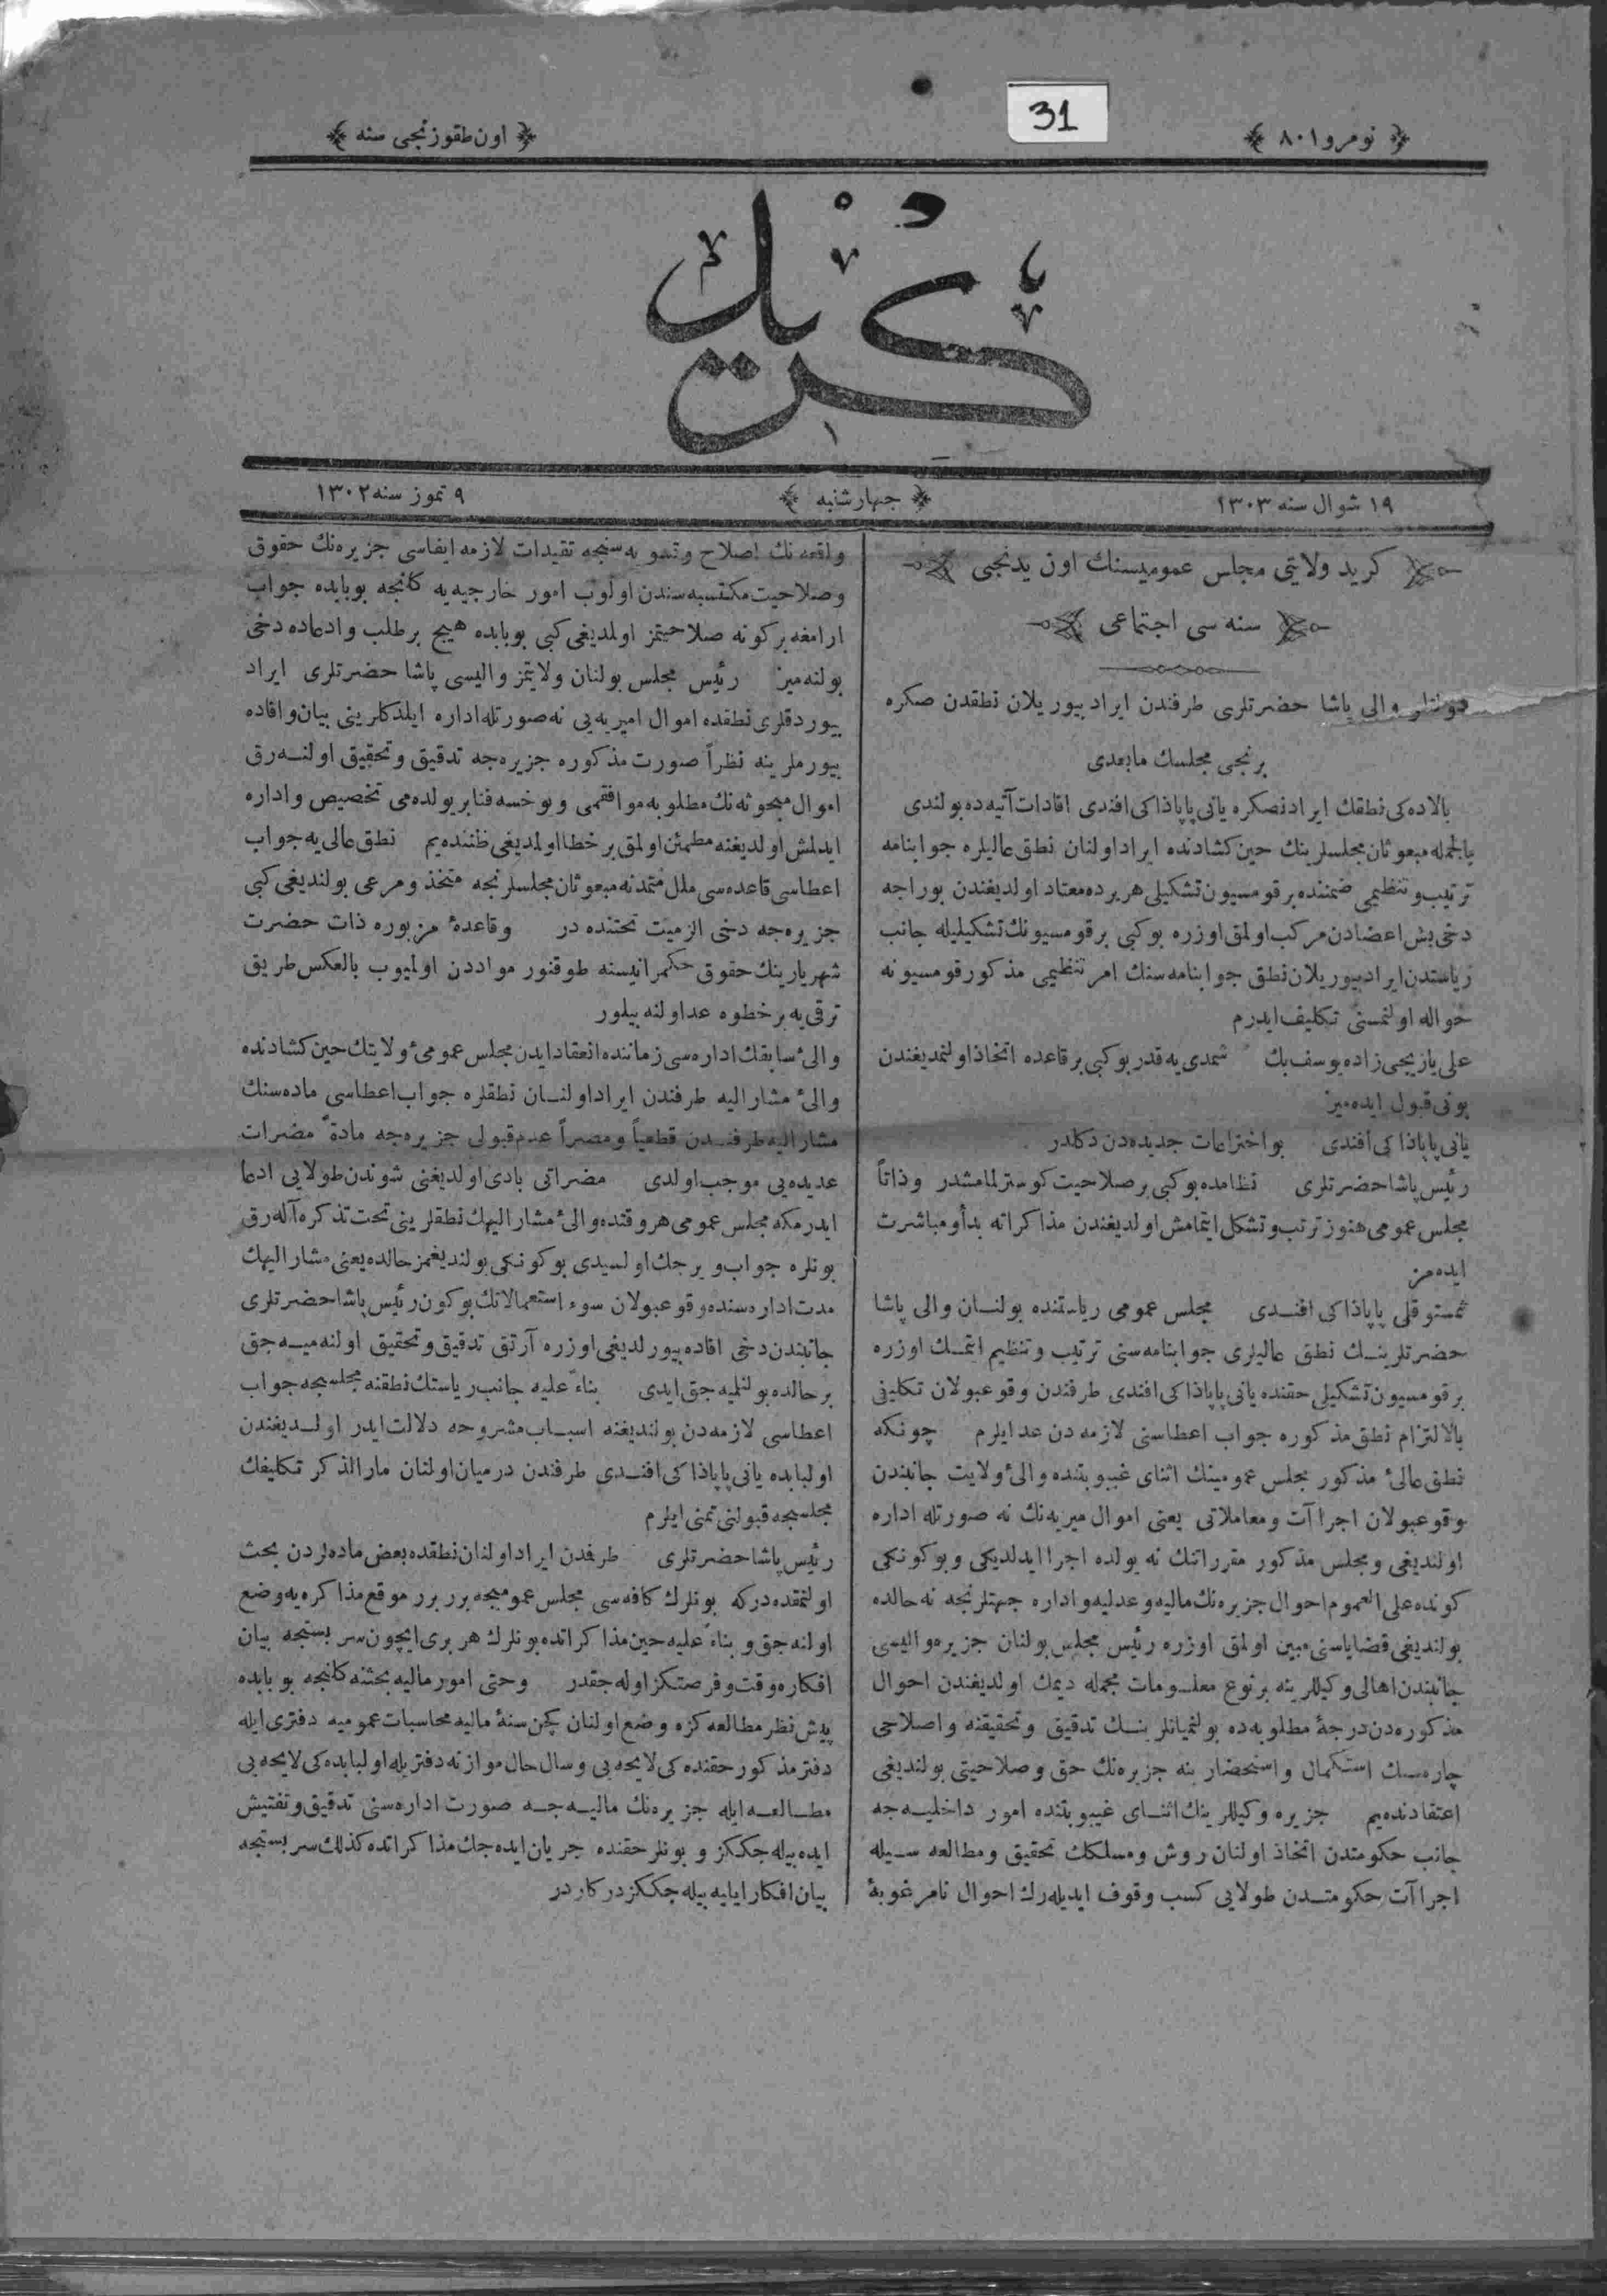 31
نومرو ٨٠١
اون طقوزنجى سنه
كريد
١٩ شوال سنه ١٣٠٣
چهارشنبه
٩ تموز سنه ١٣٠٢
كريد ولايتى مجلس عموميسنك اون يدنجى
سنه سى اجتماعى
دولتلو والى پاشا حضرتلرى طرفندن ايراد بيوريلان نطقدن صكره
برنجى مجلسك مابعدى
بالاده‌كى نطقك ايرادنصكره يانى پاپاذاكى افندى افادات آتيه‌ده بولندى
بالجمله مبعوثان مجلسلرينك حين كشادنده ايراد اولنان نطق عاليلره جوابنامه
ترتيب و تنظيمى ضمننده بر قومسيون تشكيلى هر يرده معتاد اولديغندن بوراجه
دخى بش اعضادن مركب اولمق اوزره بو كبى بر قومسيونك تشكيليله جانب
رياستدن ايراد بيوريلان نطق جوابنامه‌سنك امر تنظيمى مذكور قومسيونه
حواله اولنمسنى تكليف ايدرم
على يازيجى زاده يوسف بك شمدى‌يه قدر بو كبى بر قاعده اتخاذ اولنمديغندن
بونى قبول ايده‌ميز
يانى پاپاذاكى افندى بو اختراعات جديده‌دن دكلدر
رئيس پاشا حضرتلرى نظامده بو كبى بر صلاحيت كوسترلمامشدر و ذاتاً
مجلس عمومى هنوز ترتب و تشكل ايتمامش اولديغندن مذاكراته بدأ و مباشرت
ايده‌مز
ثمستوقلى پاپاذاكى افندى مجلس عمومى رياستنده بولنان والى پاشا
حضرتلرينك نطق عاليلرى جوابنامه‌سنى ترتيب و تنظيم ايتمك اوزره
بر قومسيون تشكيلى حقنده يانى پاپاذاكى افندى طرفندن وقوعبولان تكليفى
بالالتزام نطق مذكوره جواب اعطاسنى لازمه‌دن عد ايلرم چونكه
نطق عالىء مذكور مجلس عموميتك اثناى غيبوبتنده والىء ولايت جانبندن
وقوعبولان اجراآت و معاملاتى يعنى اموال ميريه‌نك نه صورتله اداره
اولنديغى و مجلس مذكور مقرراتنك نه يولده اجرا ايدلديكى و بوكونكى
كونده على العموم احوال جزيره‌نك ماليه و عدليه و اداره جهتلرنجه نه حالده
بولنديغى قضاياسنى مبين اولمق اوزره رئيس مجلس بولنان جزيره واليسى
جانبندن اهالى وكيللرينه بر نوع معلومات مجمله ديمك اولديغندن احوال
مذكوره‌دن درجۀ مطلوبه‌ده بولنميانلرينك تدقيق و تحقيقنه و اصلاحى
چاره‌سنك استكمال و استحضارينه جزيره‌نك حق و صلاحيتى بولنديغى
اعتقادنده‌يم جزيره وكيللرينك اثناى غيبوبتنده امور داخليه‌جه
جانب حكومتدن اتخاذ اولنان روش و مسلكك تحقيق و مطالعه سيله
اجراآت حكومتدن طولايى كسب وقوف ايديله‌رك احوال نامرغوبۀ
واقعه‌نك اصلاح و تسويه‌سنجه تقيدات لازمه ايفاسى جزيره‌نك حقوق
و صلاحيت مكتسبه‌سندن اولوب امور خارجيه‌يه كلنجه بوبابده جواب
ارامغه بر كونه صلاحيتمز اولمديغى كبى بوبابده هيچ بر طلب و ادعاده دخى
بولنه‌ميز رئيس مجلس بولنان ولايتمز واليسى پاشا حضرتلرى ايراد
بيوردقلرى نطقده اموال اميريه‌يى نه صورتله اداره ايلدكلرينى بيان و افاده
بيورملرينه نظراً صورت مذكوره جزيره‌جه تدقيق و تحقيق اولنه‌رق
اموال مبحوثه‌نك مطلوبه موافقمى و يوخسه فنا بر يولده‌مى تخصيص و اداره
ايدلمش اولديغنه مطمئن اولمق بر خطا اولمديغى ظننده‌يم نطق عالى‌يه جواب
اعطاسى قاعده‌سى ملل متمدنه مبعوثان مجلسلرنجه متخذ و مرعى بولنديغى كبى
جزيره‌جه دخى الزميت تحتنده در و قاعدۀ مزبوره ذات حضرت
شهريارينك حقوق حكمرانيسنه طوقنور مواددن اولميوب بالعكس طريق
ترقى‌يه بر خطوه عد اولنه بيلور
والىء سابقك اداره‌سى زماننده انعقاد ايدن مجلس عمومىء ولايتك حين كشادنده
والىء مشاراليه طرفندن ايراد اولنان نطقلره جواب اعطاسى ماده‌سنك
مشاراليه طرفندن قطعياً و مصراً عدم قبولى جزيره‌جه مادةً مضرات
عديده‌يى موجب اولدى مضراتى بادى اولديغنى شوندن طولايى ادعا
ايدرمكه مجلس عمومى هر وقتده والىء مشاراليهك نطقلرينى تحت تذكره آله‌رق
بونلره جواب ويرجك اولسيدى بوكونكى بولنديغمز حالده يعنى مشاراليهك
مدت اداره‌سنده وقوعبولان سوء استعمالاتك بوكون رئيس پاشا حضرتلرى
جانبندن دخى افاده بيورلديغى اوزره آرتق تدقيق و تحقيق اولنه‌ميه‌جق
بر حالده بولنميه‌جق ايدى بناءً عليه جانب رياستك نطقنه مجلسجه جواب
اعطاسى لازمه‌دن بولنديغنه اسباب مشروحه دلالت ايدر اولديغندن
اولبابده يانى پاپاذاكى افندى طرفندن درميان اولنان مارالذكر تكليفك
مجلسجه قبولنى تمنى ايلرم
رئيس پاشا حضرتلرى طرفدن ايراد اولنان نطقده بعض ماده‌لردن بحث
اولنمقده‌دركه بونلرك كافه‌سى مجلس عموميجه برر برر موقع مذاكره‌يه وضع
اولنه‌جق و بناءً عليه حين مذاكراتده بونلرك هر برى ايچون سربستجه بيان
افكاره وقت و فرصتكز اوله‌جقدر و حتى امور ماليه بحثنه كلنجه بو بابده
پيش نظر مطالعه‌كزه وضع اولنان كچن سنۀ ماليه محاسبات عموميه دفترى ايله
دفتر مذكور حقنده‌كى لايحه‌يى و سال حال موازنه دفتريله اولبابده‌كى لايحه‌يى
مطالعه ايله جزيره‌نك ماليه‌جه صورت اداره‌سنى تدقيق و تفتيش
ايده بيله‌جككز و بونلر حقنده جريان ايده‌جك مذاكراتده كذلك سربستجه
بيان افكار ايليه بيله‌جككز دركاردر